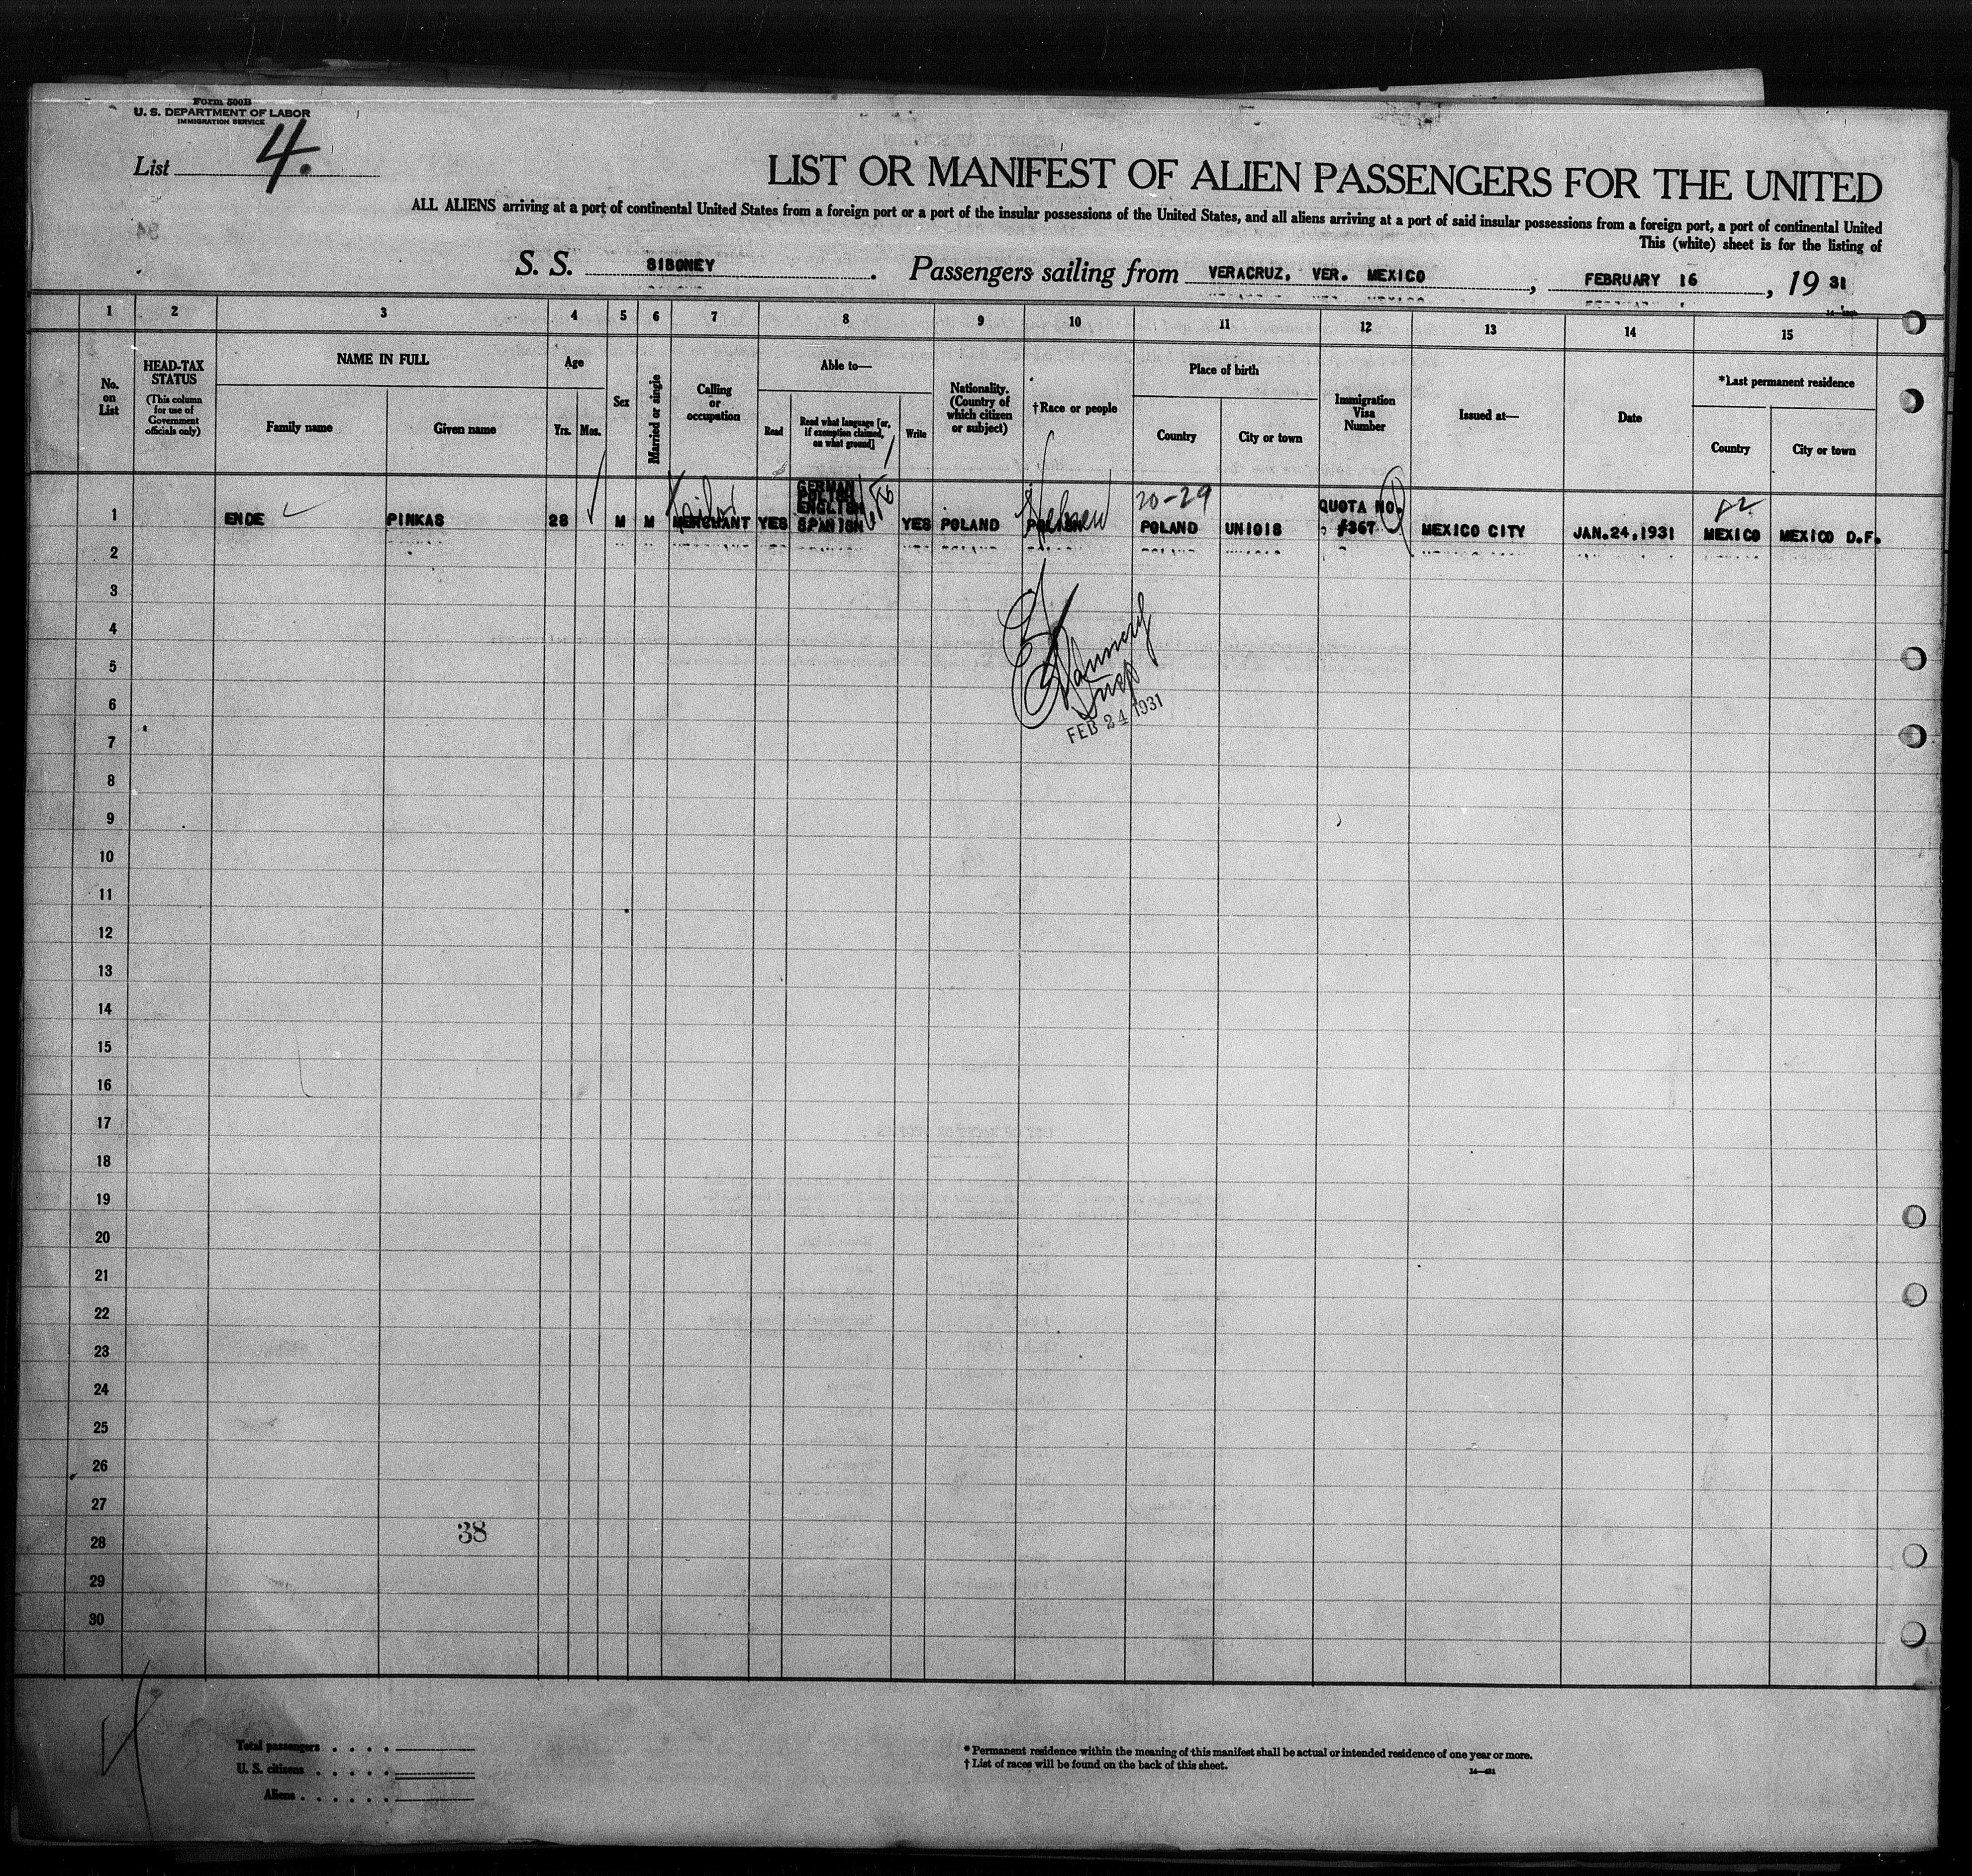 Form 500B
U. S. DEPARTMENT OF LABOR
IMMIGRATION SERVICE
List 4.
LIST OR MANIFEST OF ALIEN PASSENGERS FOR THE UNITED
ALL ALIENS arriving at a port of continental United States from a foreign port or a port of the insular possessions of the United States, and all aliens arriving at a port of said insular possessions from a foreign port, a port of continental United
This (white) sheet is for the listing of
S. S. SIBONEY. Passengers sailing from VERACRUZ, VER. MEXICO, FEBRUARY 16, 19 31
1 2 3 4 5 6 7 8 9 10 11 12 13 14 15
No. on List
HEAD-TAX STATUS
(This column for use of Government officials only)
NAME IN FULL
Family name
Given name
Age
Yrs.
Mos.
Sex
Married or single
Calling or occupation
Able to—
Read
Read what language [or, if exemption claimed, on what ground]
Write
Nationality. (Country of which citizen or subject)
†Race or people
Place of birth
Country
City or town
Immigration Visa Number
Issued at—
Date
*Last permanent residence
Country
City or town
1 ENDE PINKAS 28 M M MERCHANT Tailor YES GERMAN POLISH ENGLISH SPANISH YES POLAND POLISH Hebrew 20-29 POLAND UNIOIS QUOTA NO. #367 MEXICO CITY JAN.24,1931 MEXICO MEXICO D.F.
2
3
4
5
6
7
FEB 24 1931
8
9
10
11
12
13
14
15
16
17
18
19
20
21
22
23
24
25
26
27
28
38
29
30
Total passengers
U. S. citizens
Aliens
* Permanent residence within the meaning of this manifest shall be actual or intended residence of one year or more.
† List of races will be found on the back of this sheet.